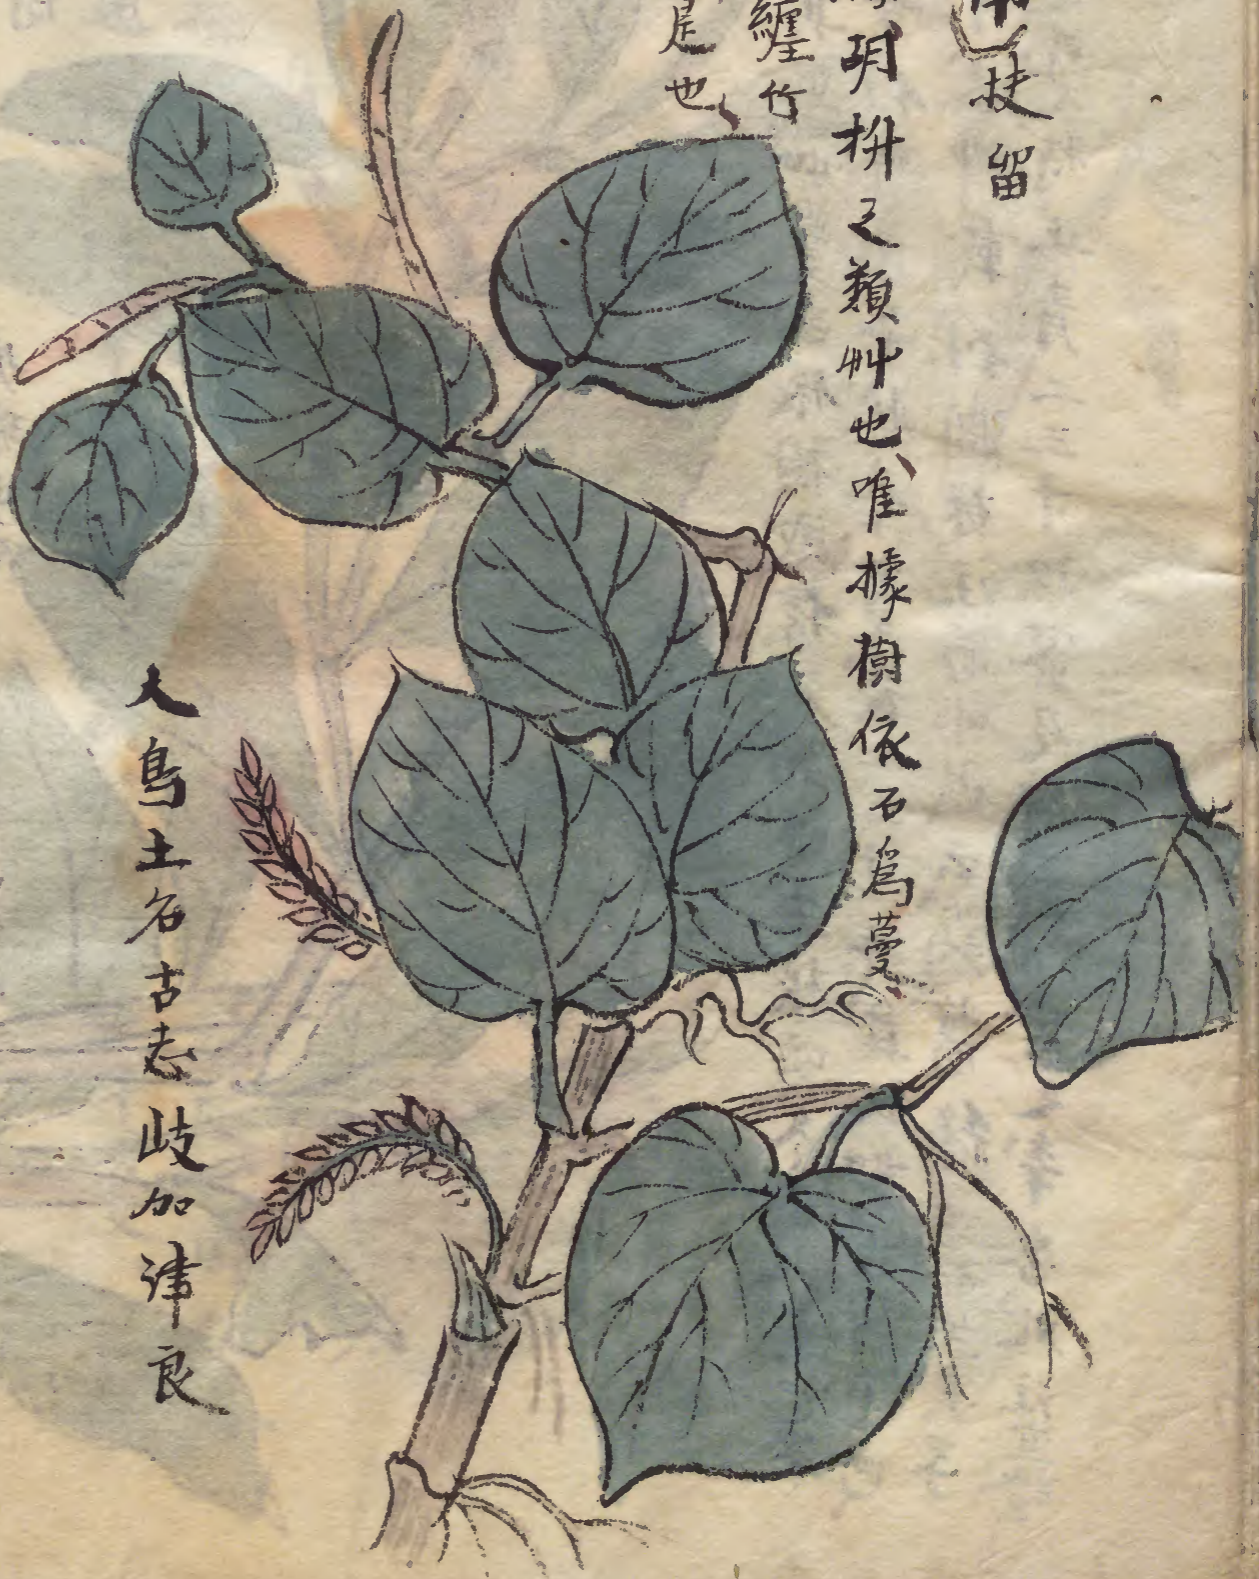 扶留
明枡之類艸也唯據樹依石爲蔓
纏竹
是也
大島土名古志岐加津良